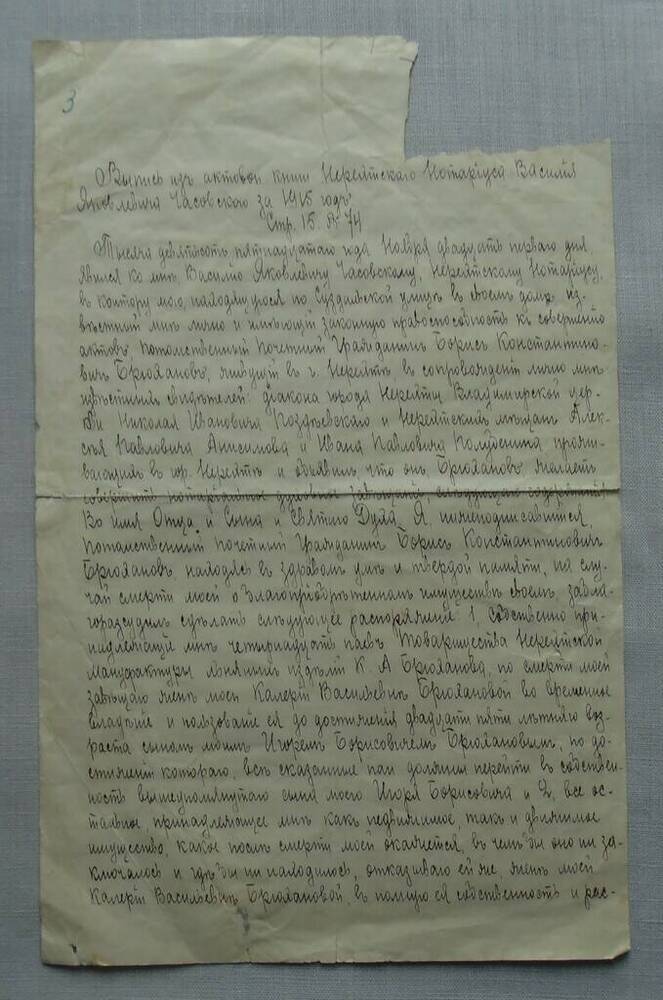 3
Выпись изъ актовой книги Нерехтскаго Нотаріуса Василія
Яковлевича Часовского за 1915 годъ.
Стр. 15. № 74
Тысяча девятьсотъ пятнадцатаго года Ноября двадцать перваго дня
явился ко мнѣ, Василію Яковлевичу Часовскому, Нерехтскому Нотаріусу,
въ контору мою, находящуюся по Суздальской улицѣ въ своемъ домѣ, из-
вѣстный мнѣ лично и имѣющій законную правоспособность къ совершенію
актовъ, потомственный Почетный Гражданинъ Борисъ Константино-
вичъ Брюхановъ, живущій въ г. Нерехтѣ, въ сопровожденіи лично мнѣ
извѣстныхъ свидѣтелей: діакона города Нерехты Владимирской цер-
кви Николая Ивановича Поздѣевскаго и Нерехтскихъ мѣщанъ Алек-
сѣя Павловича Анисимова и Ивана Павловича Полубенина, прожи-
вающихъ въ гор. Нерехтѣ и объявилъ что онъ Брюхановъ желаетъ
совершить нотаріальное духовное завѣщаніе, слѣдующаго содержанія
Во имя Отца и Сына и Святаго Духа. Я, нижеподписавшійся,
потомственный почетный Гражданинъ Борисъ Константиновичъ
Брюхановъ, находясь въ здравомъ умѣ и твердой памяти, на слу-
чай смерти моей о благопріобрѣтенномъ имуществѣ своемъ, забла-
горазсудилъ сдѣлать слѣдующее распоряженіе: 1, Собственно при-
надлежащіе мнѣ четырнадцать паевъ Товарищества Нерехтской
Мануфактуры льняныхъ издѣлій К. А Брюханова, по смерти моей
завѣщаю женѣ моей Калеріи Васильевнѣ Брюхановой во временное
владѣніе и пользованіе ея до достиженія двадцати пяти лѣтняго воз-
раста сыномъ моимъ Игоремъ Борисовичемъ Брюхановымъ, по до-
стиженіи котораго, всѣ сказанные паи должны перейти въ собствен-
ность вышеупомянутаго сына моего Игоря Борисовича и 2, все ос-
тальное, принадлежащее мнѣ какъ недвижимое, такъ и движимое
имущество, какое послѣ смерти моей окажется, въ чемъ бы оно ни за-
ключалось и гдѣ бы ни находилось, отказываю ей же, женѣ моей
Калеріи Васильевнѣ Брюхановой, въ полную ея собственность и рас-